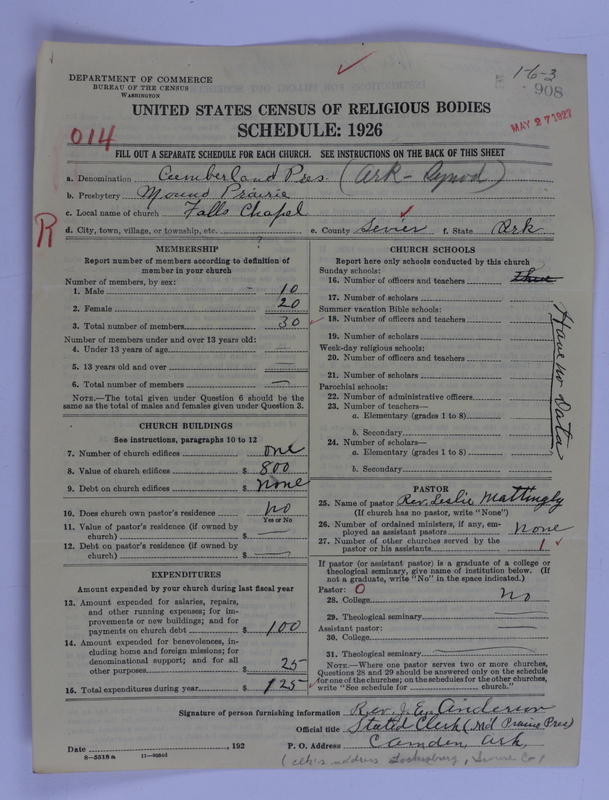 DEPARTMENT OF COMMERCE
BUREAU OF THE CENSUS
WASHINGTON
1-6-3
908
MAY 27 1927
UNITED STATES CENSUS OF RELIGIOUS BODIES
SCHEDULE: 1926
014
FILL OUT A SEPARATE SCHEDULE FOR EACH CHURCH. SEE INSTRUCTIONS ON THE BACK OF THIS SHEET
a. Denomination Cumberland Pres. (Ark - Synod)
b. Presbytery Mound Prairie
c. Local name of church Falls Chapel
R
d. City, town, village, or township, etc. e. County Sevier f. State Ark
?
MEMBERSHIP
Report number of members according to definition of
member in your church
Number of members, by sex:
1. Male 10
2. Female 20
3. Total number of members 30
Number of members under and over 13 years old:
4. Under 13 years of age
5. 13 years old and over
6. Total number of members —
NOTE.—The total given under Question 6 should be
same as the total of males and females given under Question 3.
CHURCH BUILDINGS
See instructions, paragraphs 10 to 12
7. Number of church edifices one
8. Value of church edifices $ 800
9. Debt on church edifices $ none
10. Does church own pastor's residence No
Yes or No
11. Value of pastor's residence (if owned by
church) $ —
12. Debt on pastor's residence (if owned by
church) $ —
EXPENDITURES
Amount expended by your church during last fiscal year
13. Amount expended for salaries, repairs,
and other running expenses; for im-
provements or new buildings; and for
payments on church debt $ 100
14. Amount expended for benevolences, in-
cluding home and foreign missions; for
denominational support; and for all
other purposes $ 25
15. Total expenditures during year $ 125
CHURCH SCHOOLS
Report here only schools conducted by this church
Sunday schools:
16. Number of officers and teachers
17. Number of scholars
Summer vacation Bible schools:
18. Number of officers and teachers
19. Number of scholars
Week-day religious schools:
20. Number of officers and teachers
21. Number of scholars
Parochial schools:
22. Number of administrative officers
23. Number of teachers—
a. Elementary (grades 1 to 8)
b. Secondary
24. Number of scholars—
a. Elementary (grades 1 to 8)
b. Secondary
Have no data
PASTOR
25. Name of pastor Rev. Leslie Mattingly
(If church has no pastor, write "None")
26. Number of ordained ministers, if any, em-
ployed as assistant pastors none
27. Number of other churches served by the
pastor or his assistants 1
If pastor (or assistant pastor) is a graduate of a college or
theological seminary, give name of institution below. (If
not a graduate, write "No" in the space indicated.)
Pastor: 0
28. College no
29. Theological seminary
Assistant pastor:
30. College
31. Theological seminary
NOTE.—Where one pastor serves two or more churches,
Questions 28 and 29 should be answered only on the schedule
for one of the churches; on the schedules for the other churches,
write "See schedule for church."
Signature of person furnishing information Rev. J. E. Anderson
Official title Stated Clerk (Md Prairie Pres)
Date , 192 P. O. Address Camden, Ark,
8-5518 a
(clk's address Lockesburg, Sevier Co)